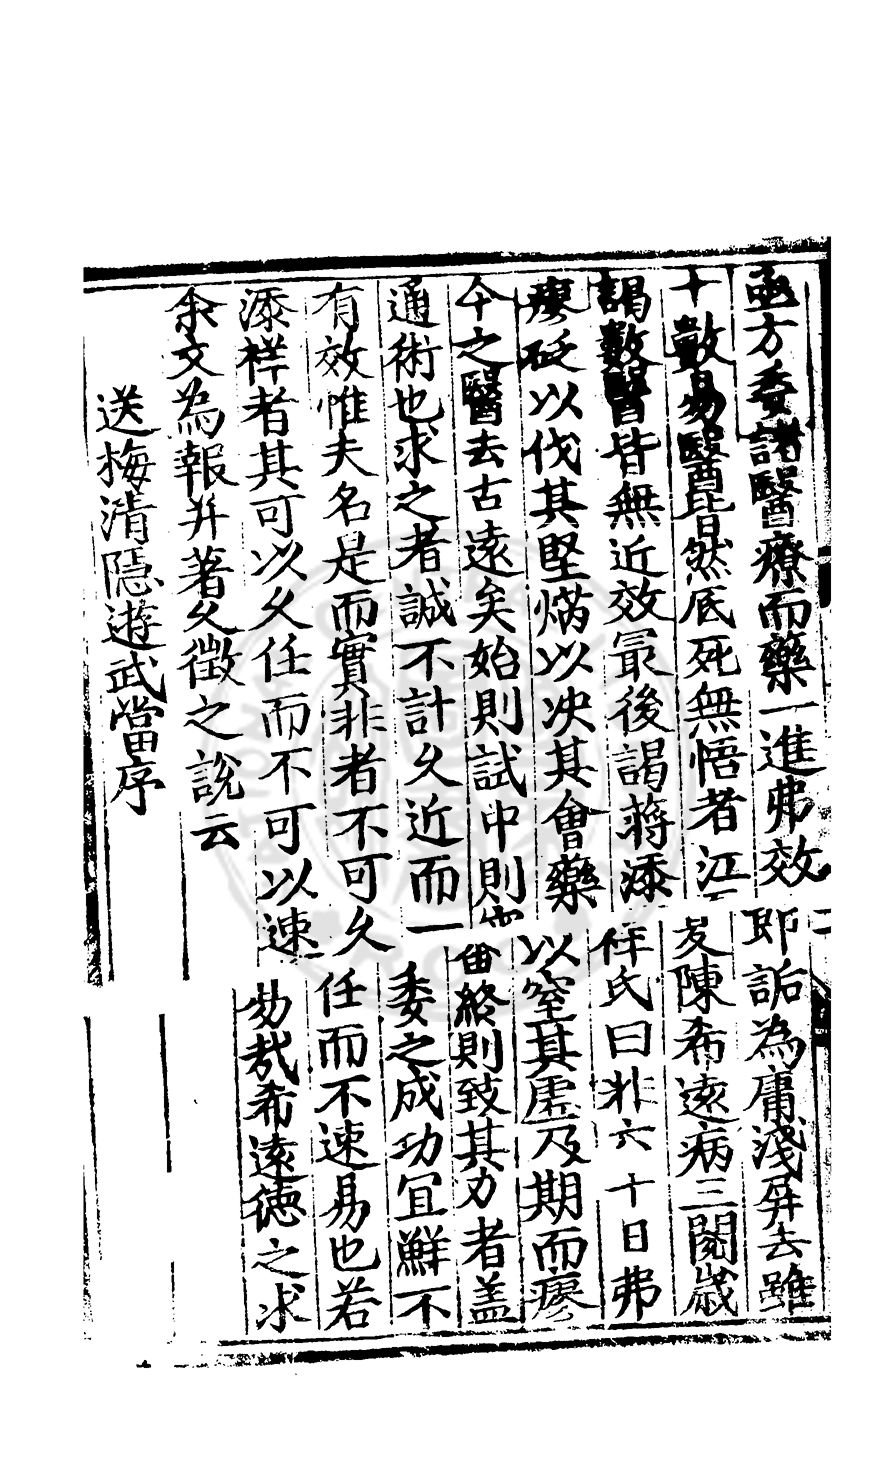 亟方委諸醫療而藥一進弗效即詬為庸淺屏去雖
十數易醫毘然底死無悟者江友陳希遠病三閱歲
謁數醫皆無近效最後謁蔣添祥氏曰非六十日弗
瘳砭以伐其堅焫以決其會藥以窒其虗及期而瘳
今之醫去古遠矣始則試中則終則致其力者盖
通術也求之者誠不計久近而一委之成功冝鮮不
有效惟夫名是而實非者不可久任而不速易也若
添祥者其可以久任而不可以速効哉希遠德之求
余文為報并著久徵之說云
送梅清隱遊武當序